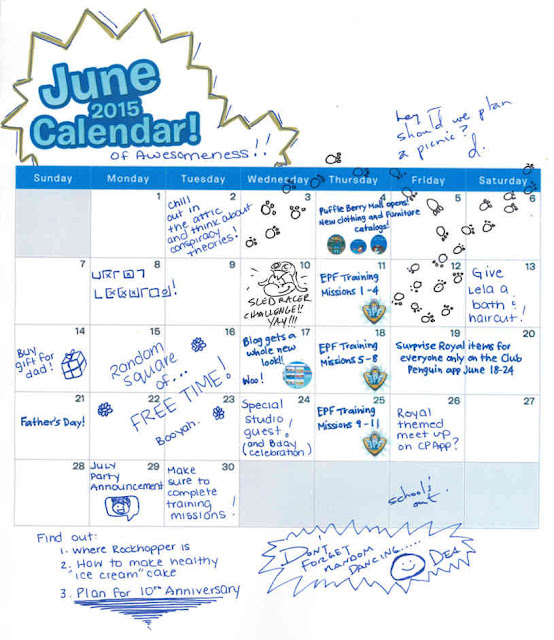 June
2015
Calendar!
of Awesomeness!!
hey
should we plan
a picnic?
d.
Sunday Monday Tuesday Wednesday Thursday Friday Saturday
1 2 3 4 5 6
chill
out in
the attic
and think about
conspiracy
theories!
Puffle Berry Mall opens!
New clothing and furniture
catalogs!
7 8 9 10 11 12 13
SLED RACER
CHALLENGE!!
YAY!!!
EPF Training
Missions 1-4
EPF
Give
Lela a
bath &
haircut!
14 15 16 17 18 19 20
Buy
gift for
dad!
Random
square
of...
FREE TIME!
Booyah.
Blog gets a
whole new
look!!
Woo!
EPF Training
Missions 5-8
EPF
Surprise Royal items for
everyone only on the Club
Penguin app June 18-24
21 22 23 24 25 26 27
Father's Day!
Special
studio
guest!
(and Bday
celebration)
EPF Training
Missions 9-11
EPF
Royal
themed
meet up
on CPApp?
28 29 30
July
Party
Announcement
Make
sure to
complete
training
missions!
school's
out.
Find out:
1. where Rockhopper is
2. How to make healthy
"ice cream" cake
3. Plan for 10th Anniversary
DON'T
FORGET
RANDOM
DANCING.....
DEA